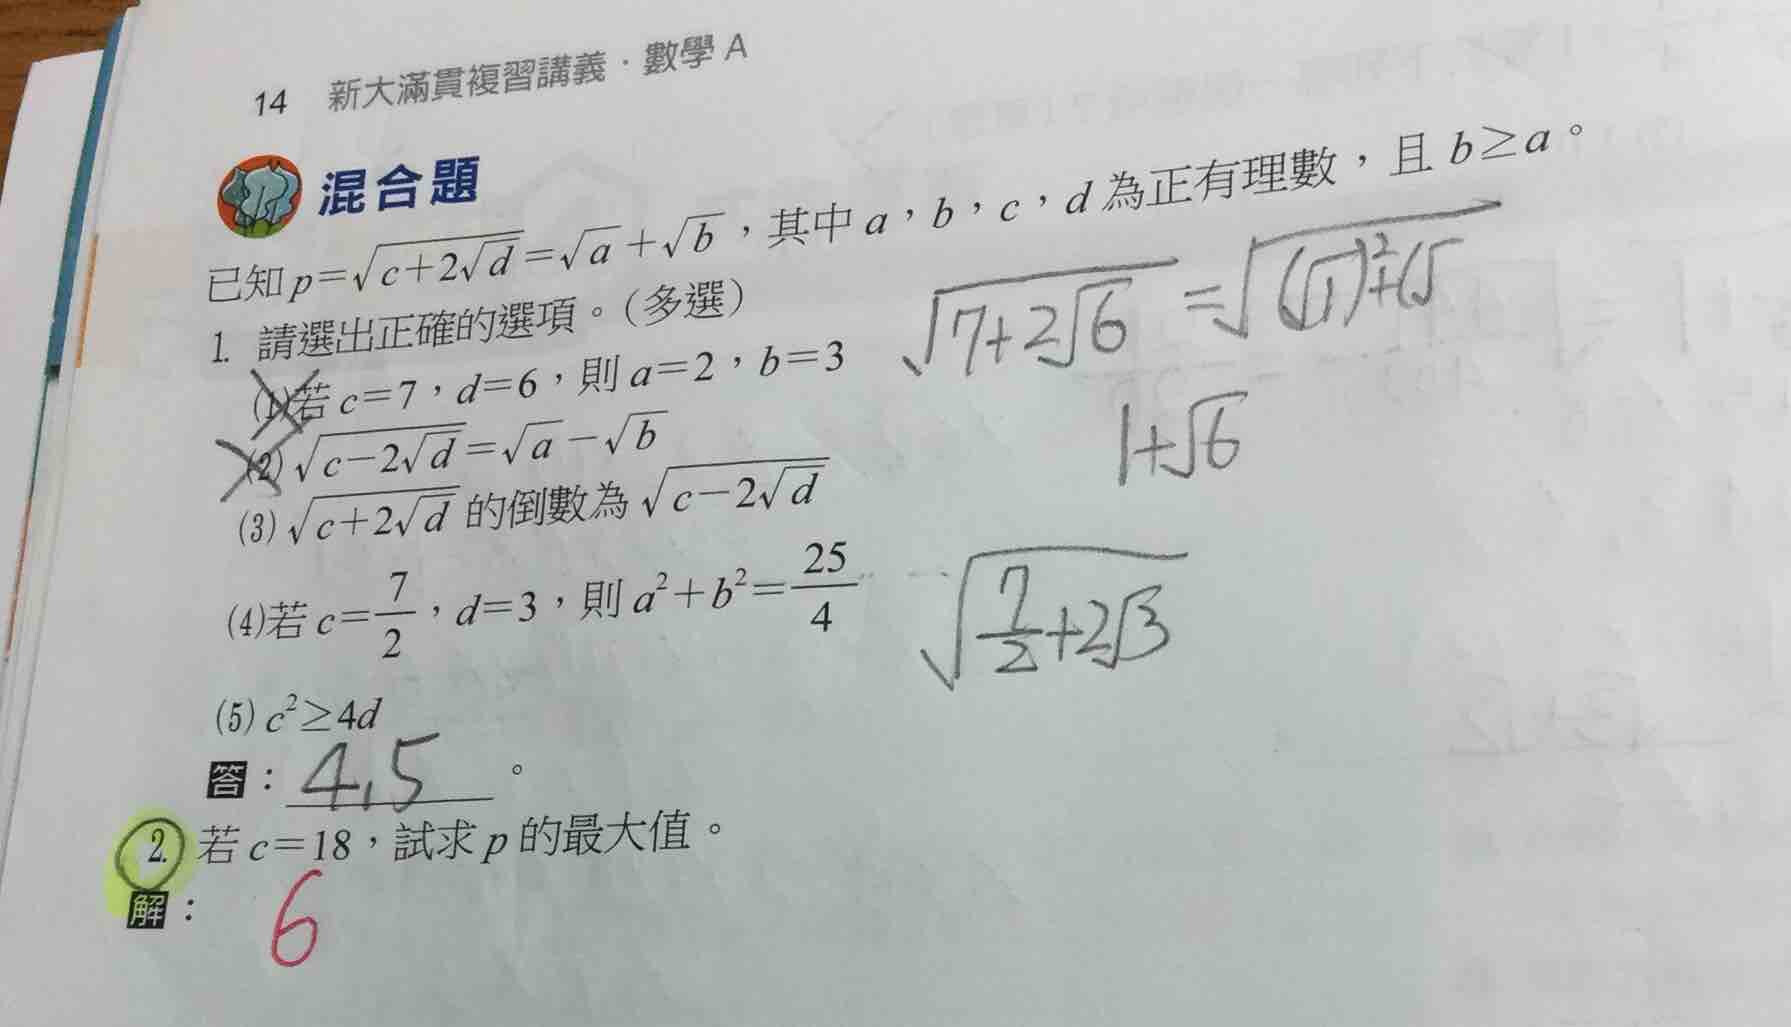 14 新大滿貫複習講義・數學 A
混合題
已知 p=√(c+2√d)=√a+√b，其中 a，b，c，d 為正有理數，且 b≥a。
1. 請選出正確的選項。(多選)
(1)若 c=7，d=6，則 a=2，b=3
√(7+2√6) =√((√1)²+(√
(2) √(c−2√d)=√a−√b
1+√6
(3) √(c+2√d) 的倒數為 √(c−2√d)
(4)若 c=7/2，d=3，則 a²+b²=25/4
√(7/2+2√3)
(5) c²≥4d
答：4,5。
2. 若 c=18，試求 p 的最大值。
解： 6